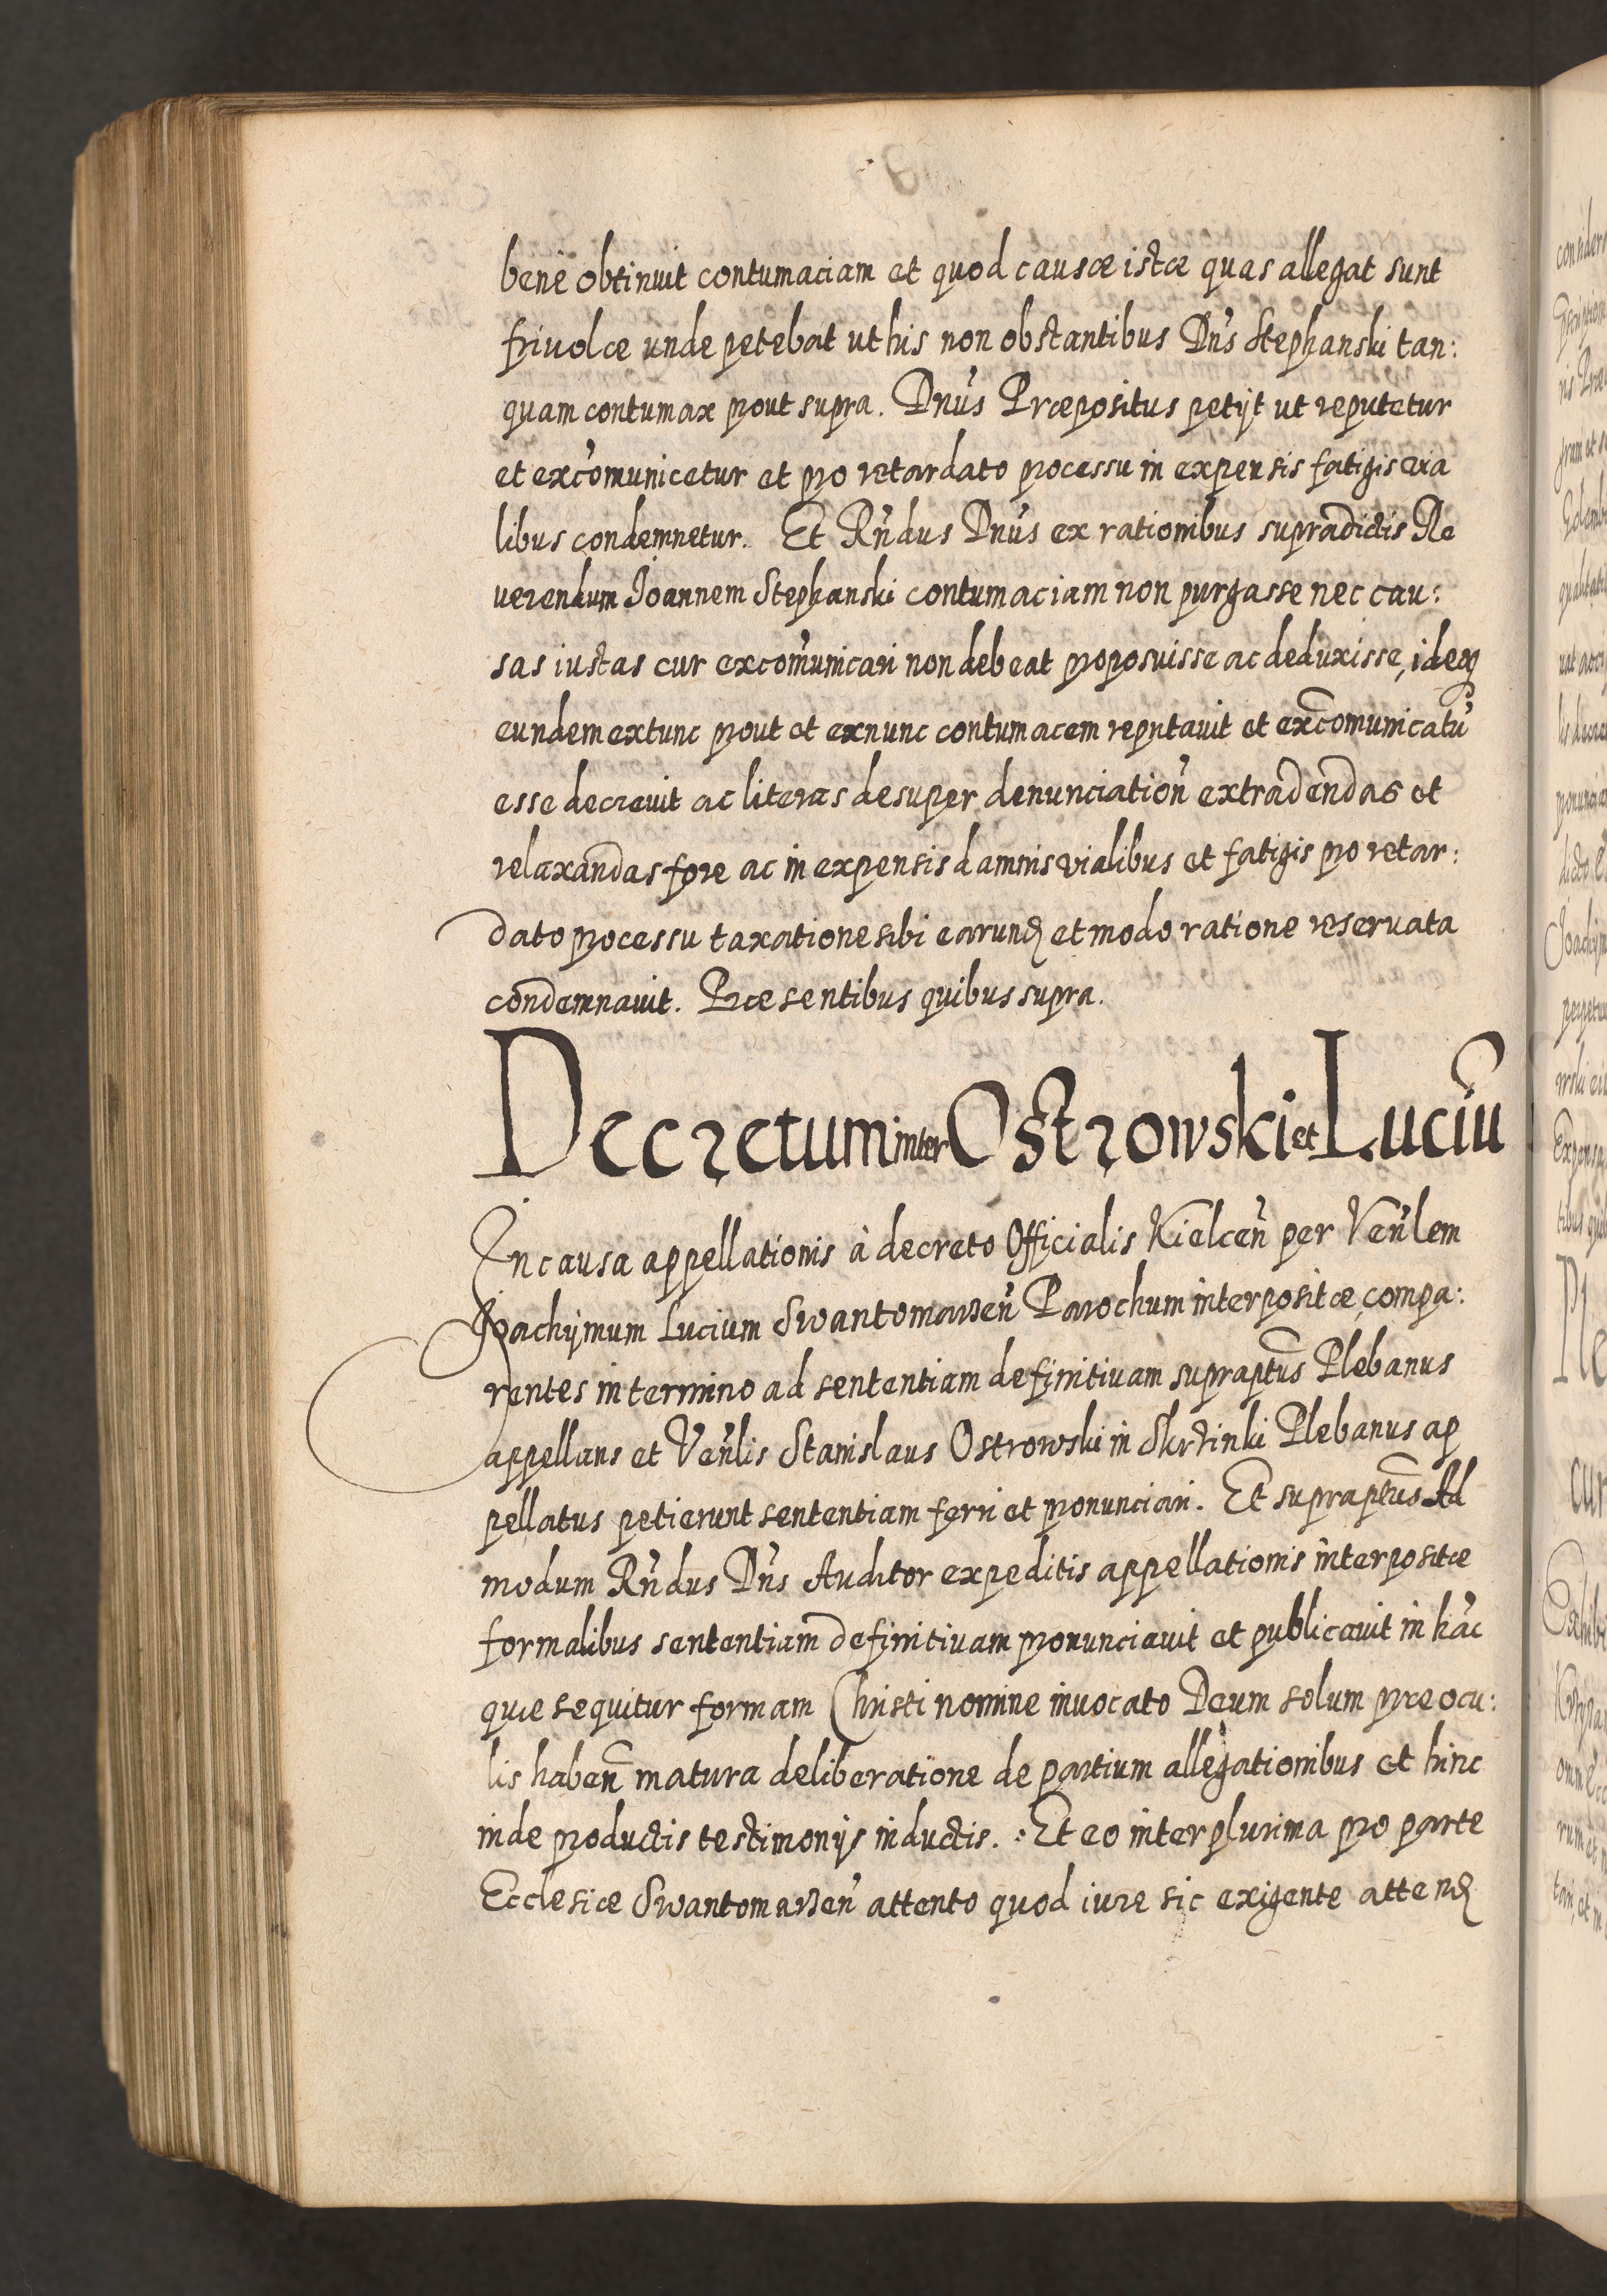 benè obtinuit contumaciam et quod causæ istæ quas allegat sunt
friuolæ unde petebat ut his non obstantibus Dn̄s Stephanski tan:
quam contumax prout supra. Dnūs Præpositus petijt ut reputetur
et excōmunicetur et pro retardato processu in expensis fatigis via
libus condemnetur. Et Rn̄dus Dnūs ex rationibus supradictis Re
uerendum Joannem Stephanski contumaciam non purgasse nec cau:
sas iustas cur excōmunicari non debeat proposuisse ac deduxisse, ideoq
eundem extunc prout et exnunc contumacem reputauit et excōmunicatū
esse decreuit ac literas desuper denunciation̄ extradendas et
relaxandas fore ac in expensis damnis vialibus et fatigis pro retar:
dato processu taxatione sibi earund et modo ratione reseruata
condemnauit. Præsentibus quibus supra.
Decretum inter Ostrowski et Luciū
In causa appellationis à decreto Officialis Kielcen̄ per Ven̄lem
Joachymum Lucium Swantomarzen̄ Parochum interpositæ, compa:
rentes in termino ad sententiam definitiuam suprapt̄us Plebanus
appellans et Ven̄lis Stanislaus Ostrowski in Skrzinki Plebanus ap
pellatus petierunt sententiam ferri et pronunciari. Et suprapt̄us Ad
modum Rn̄dus Dn̄s Auditor expeditis appellationis interpositæ
formalibus sententiam definitiuam pronunciauit et publicauit in hāc
quæ sequitur formam Christi nomine inuocato Deum solum præ ocu:
lis haben̄ matura deliberatione de partium allegationibus et hinc
inde productis testimonijs inductis. Et eo inter plurima pro parte
Ecclesiæ Swantomarzen̄ attento quod iure sic exigente attend